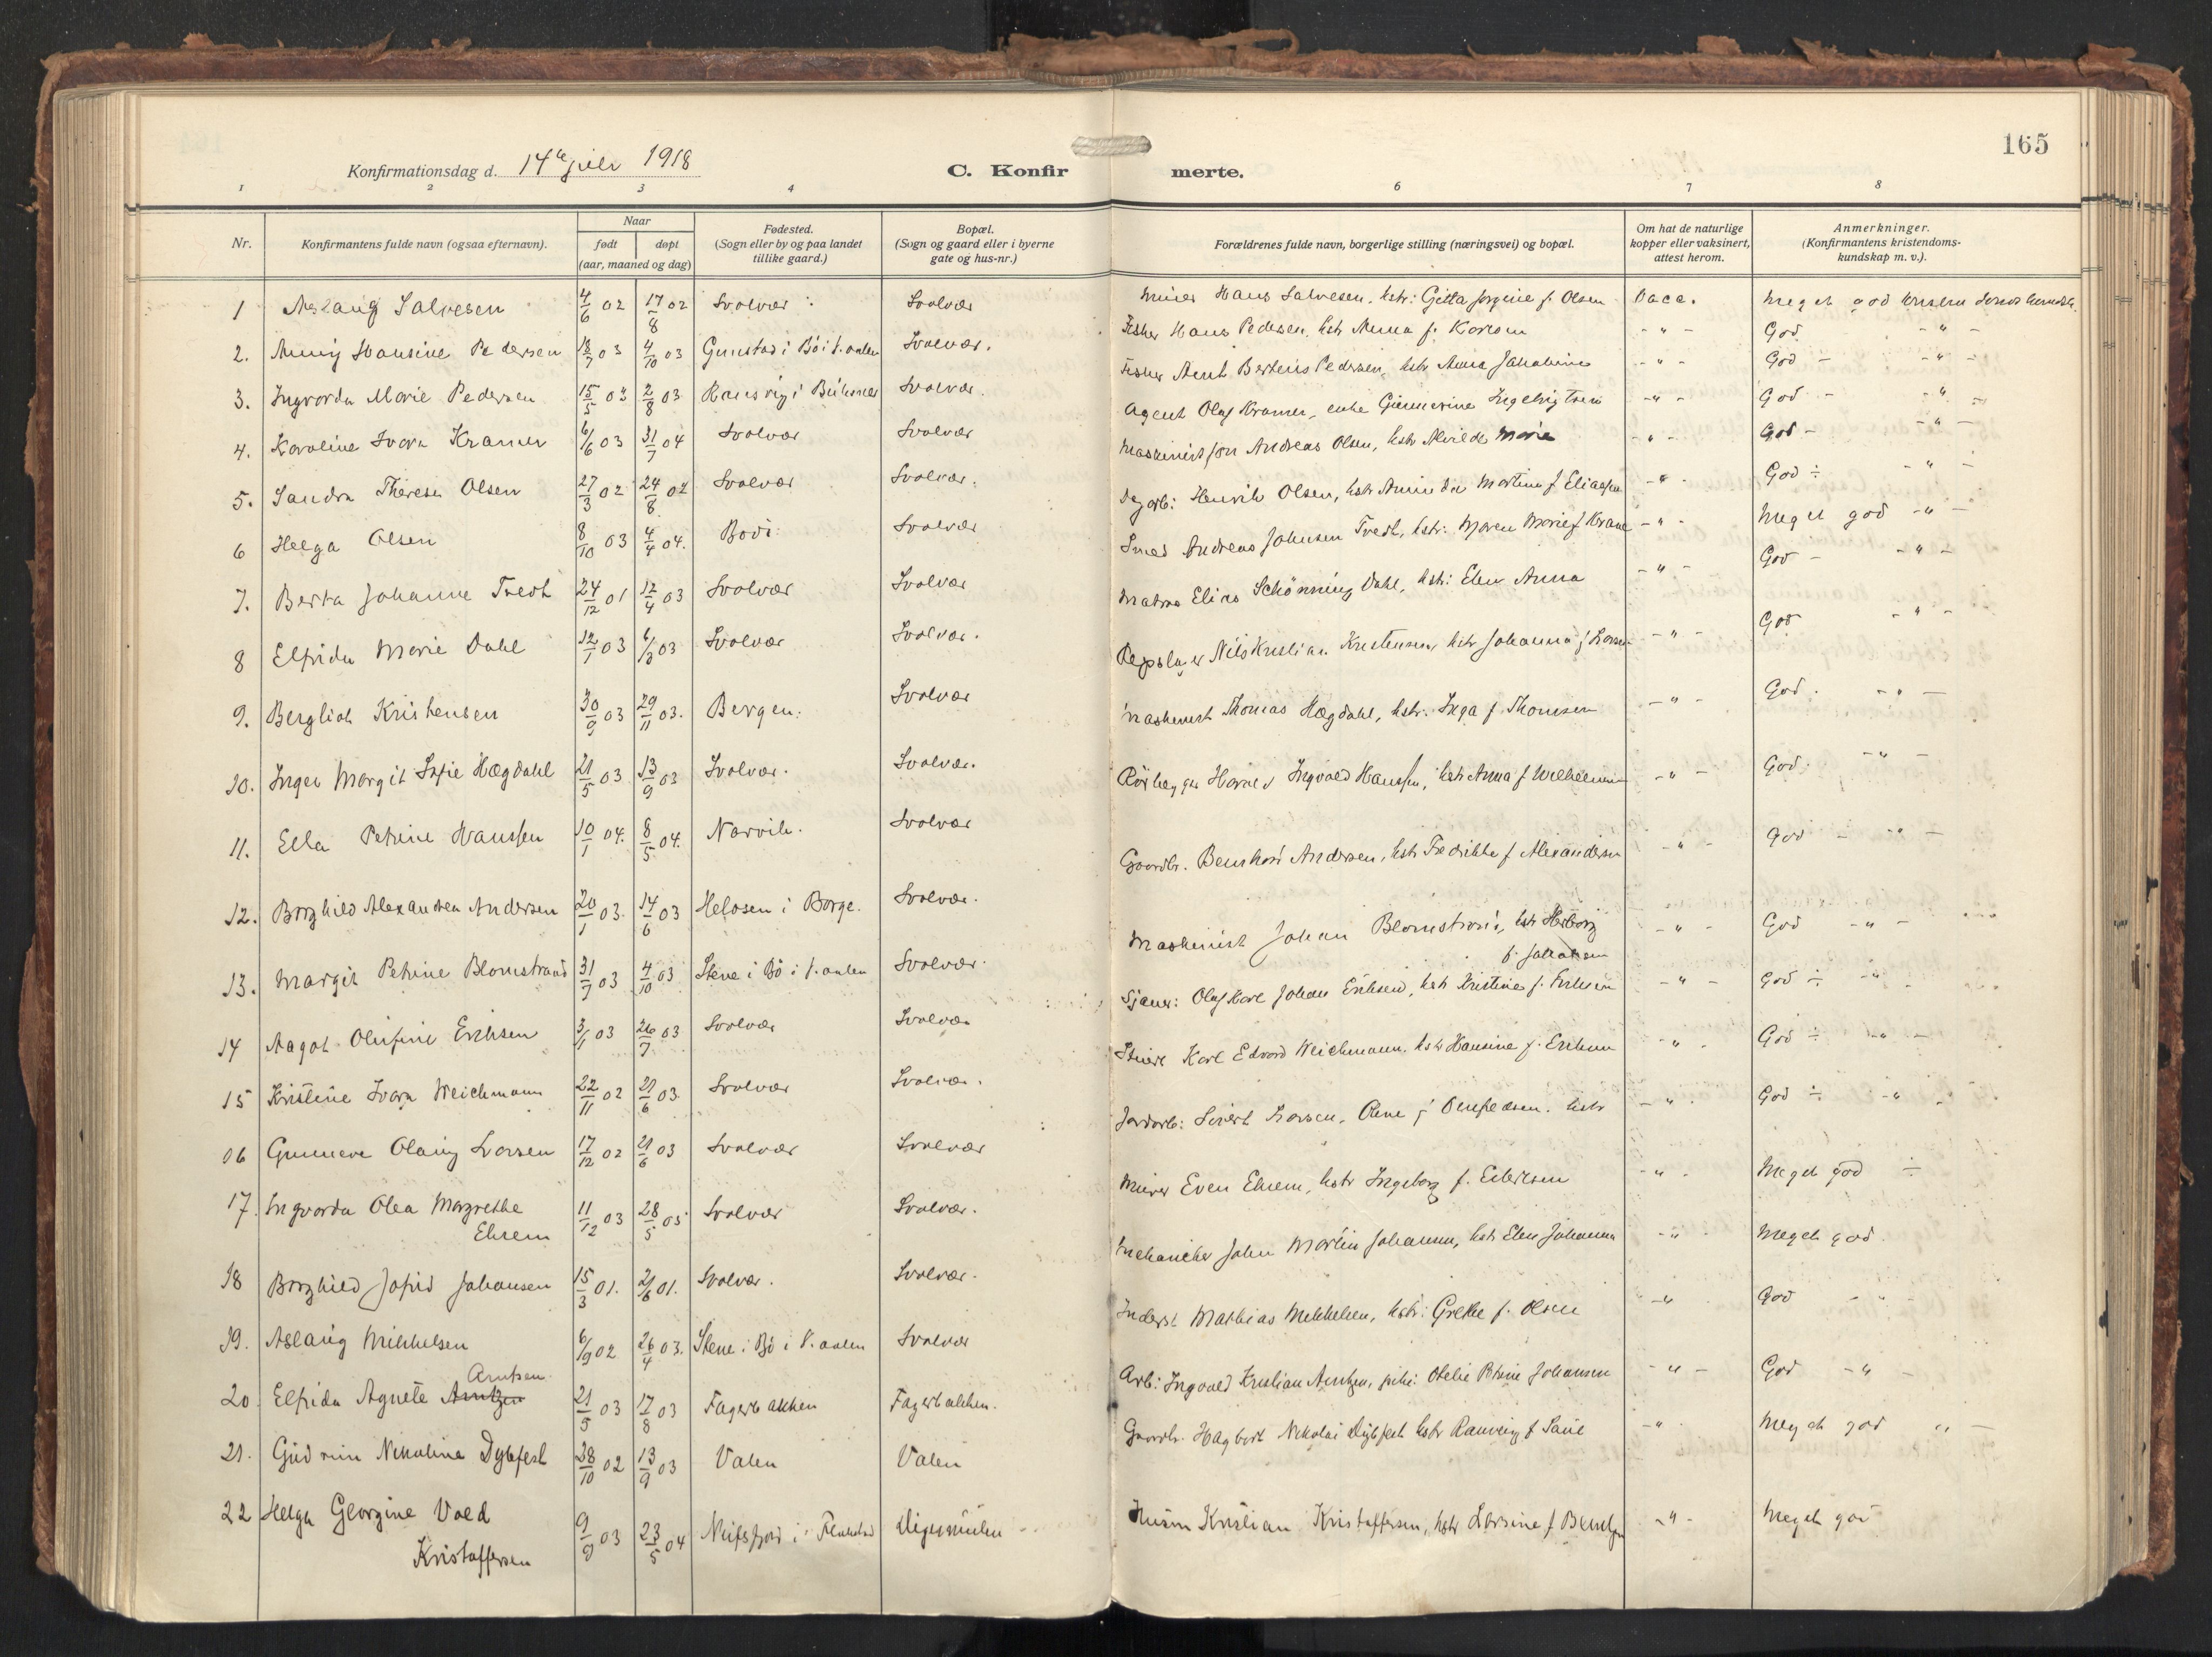 165
Konfirmationsdag d. 14de juli 1918
C. Konfirmerte.
1 2 3 4 5 6 7 8
Nr. Konfirmantens fulde navn (ogsaa efternavn). Naar født døpt (aar, maaned og dag) Fødested. (Sogn eller by og paa landet tillike gaard.) Bopæl. (Sogn og gaard eller i byerne gate og hus-nr.) Forældrenes fulde navn, borgerlige stilling (næringsvei) og bopæl. Om hat de naturlige kopper eller vaksinert, attest herom. Anmerkninger. (Konfirmantens kristendoms-kundskap m. v.).
1 Aslaug Salvesen 4/6 02 17/8 02 Svolvær Svolvær Murer Hans Salvesen, hstr: Gitta Jorgine f. Olsen Vacc. Meget god kristendomskundsk.
2. Hansine Pedersen 18/7 03 4/10 03 Gunstad i Bø i V.aalen Svolvær. Fisker Hans Pedersen, hstr Anna f. -"- God -"-
3. Ingvorda Marie Pedersen 15/5 03 2/8 03 Svolvær. Fisker Arnt Bertens Pedersen, hstr Anna Jakobine -"- God - -"-
4. Karoline Ivara Kramer 6/6 03 31/7 04 Svolvær Svolvær Agent Olaf Kramer, enke -"- God - -"-
5. Sandra Theresa Olsen 27/3 02 24/8 02 Svolvær Svolvær. Maskinist Andreas Olsen, hstr Alvilde Marie -"- God - -"-
6 Helga Olsen 8/10 03 4/4 04. Bodø Svolvær Dagarb: Henrik Olsen, hstr Martine f Eliassen -"- God ÷ -"-
7. Berta Johanne Tvedt 24/12 01 12/4 03 Svolvær Svolvær Smed Andreas Johnsen Tvedt, hstr: Maren Marie f Krane -"- Meget god -"-
8 Elfrida Marie Dahl 12/1 03 6/3 03 Svolvær Svolvær. Matros Elias Schønning Dahl, hstr: Elen Anna -"- God - -"-
9. Bergliot Kristensen 30/9 03 29/11 03. Bergen. Svolvær Repslager Nils Kristian Kristensen, hstr Johanna f Larsen -"- God -"-
10. Inger Margit Sofie Hægdahl 21/5 03 13/9 03 Svolvær. Svolvær. Maskinist Thomas Hægdahl, hstr: Inga f. Thomsen -"- God. -"-
11. Ella Petrine Hanssen 10/1 04. 8/5 04. Narvik. Svolvær Rørlegger Harald Ingvald Hanssen, hstr Anna f -"- God. -"-
12. Borghild Alexandra Andersen 20/1 03. 14/6 03 Helosen i Borge. Svolvær. Gaardbr. Bernhard Andersen, hstr Fredrikke f Alexandersen -"- God - -"-
13. Margit Petrine Blomstrand 31/7 03 4/10 03 Steve i Bø i V.aalen Svolvær. Maskinist Johan Blomstrand, hstr Herborg
f. Jakobsen -"- God -"-
14 Aagot Olufine Eriksen 3/1 03 26/7 03 Svolvær Svolvær Sjauer: Olaf Karl Johan Eriksen, hstr Kristine f. Eriksen -"- God ÷ -"-
15 Kristine Ivara Weichmann 22/11 02 21/6 03 Svolvær Svolvær. Karl Edvard Weichmann, hstr Hansine f. Eriksen -"- God ÷ -"-
06 Gunneva Olaug Larsen 17/12 02 21/6 03 Svolvær Svolvær Jordarb: Sivert Larsen, Olene f hstr -"- God ÷ -"-
17. Ingvorda Olea Margrethe
Ehrem 11/12 03 28/5 05 Svolvær Svolvær. Murer Even Ehrem, hstr Ingeborg f. Eilertsen -"- Meget god ÷
18 Borghild Jofrid Johansen 15/3 01. 21/6 01. Svolvær. Svolvær. Mekaniker John Martin Johansen, hstr Elen Johanna -"- Meget god.
19. Aslaug Mikkelsen 6/9 02 26/4 03. Steve i Bø i V.aalen Svolvær Inderst Mathias Mikkelsen, hstr: Grethe f. Olsen -"- God -"-
20. Elfrida Agnete Arntzen Arntsen 21/5 03 17/8 03 Fagerbakken Fagerbakken. Arb: Ingvald Kristian Arntzen, pike: Otelie Petrine Johansen -"- God -"-
21. Gudrun Nikoline Dybfest 28/10 02 13/9 03 Valen Valen Gaardbr. Hagbart Nikolai Dybfest hstr Ranveig f -"- Meget god "-
22 Helga Georgine Vold
Kristoffersen 9/9 03 23/5 04 i Flakstad Digermulen Kristian Kristoffersen, hstr Larsine f Berntzen -"- Meget god